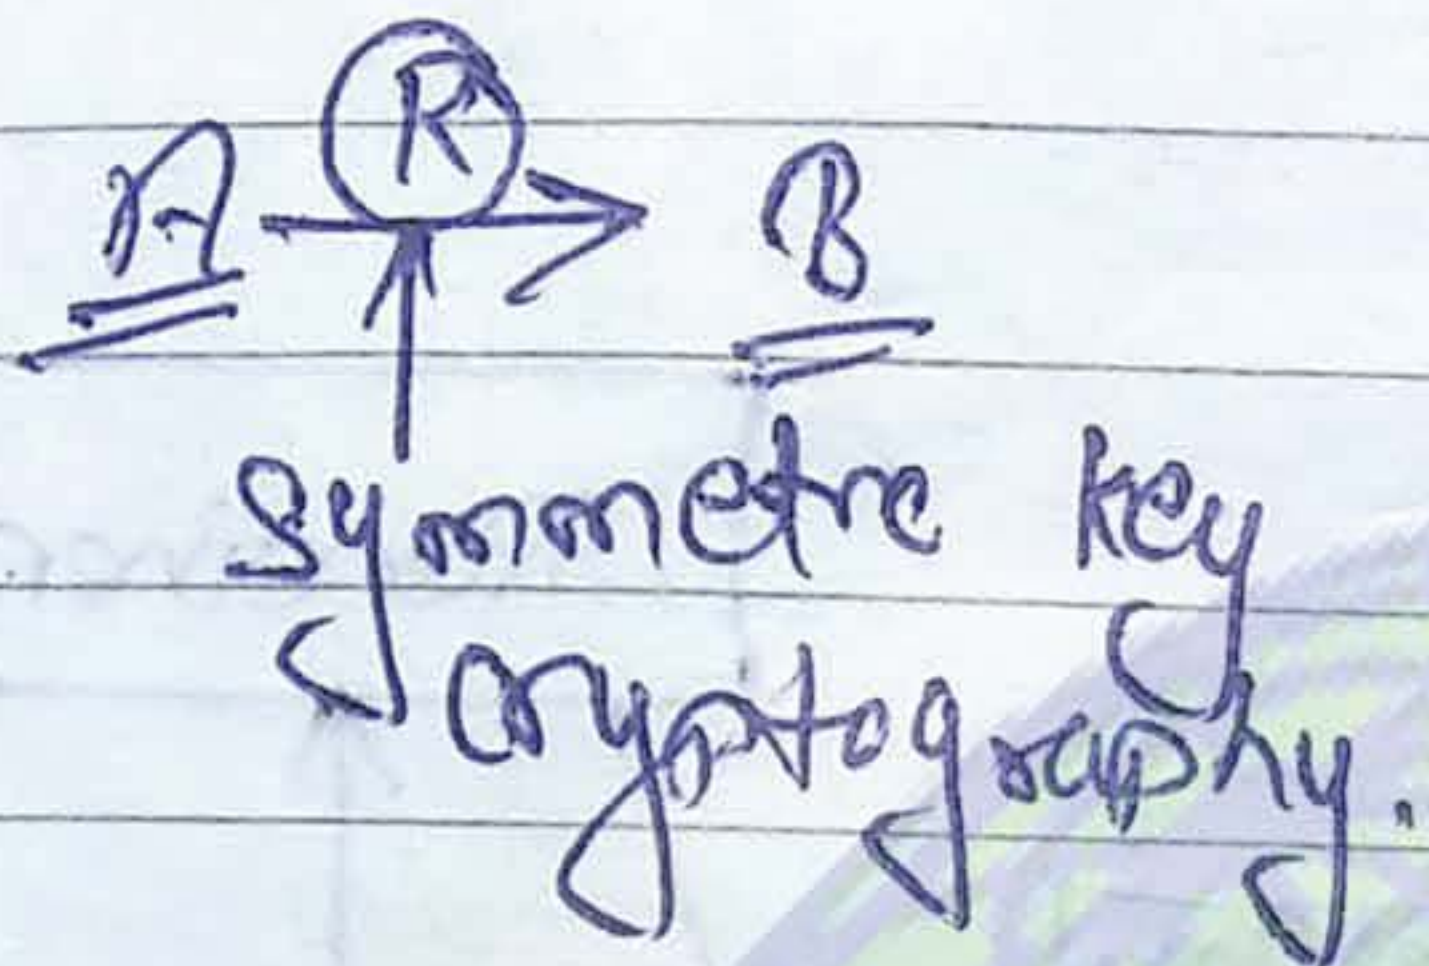 R
A B
Symmetric key
cryptography.